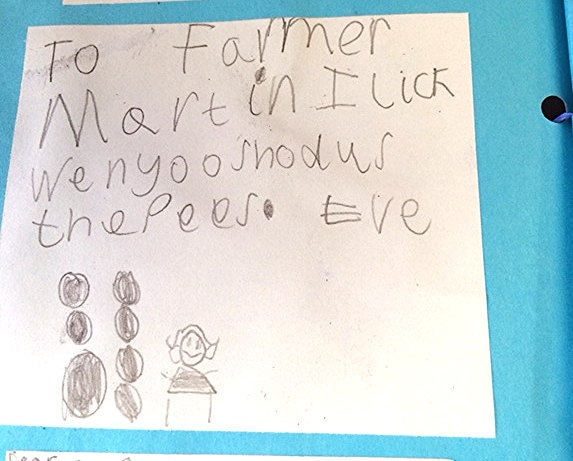 To Farmer
Martin I lick
wenyooshodus
thePees. Eve